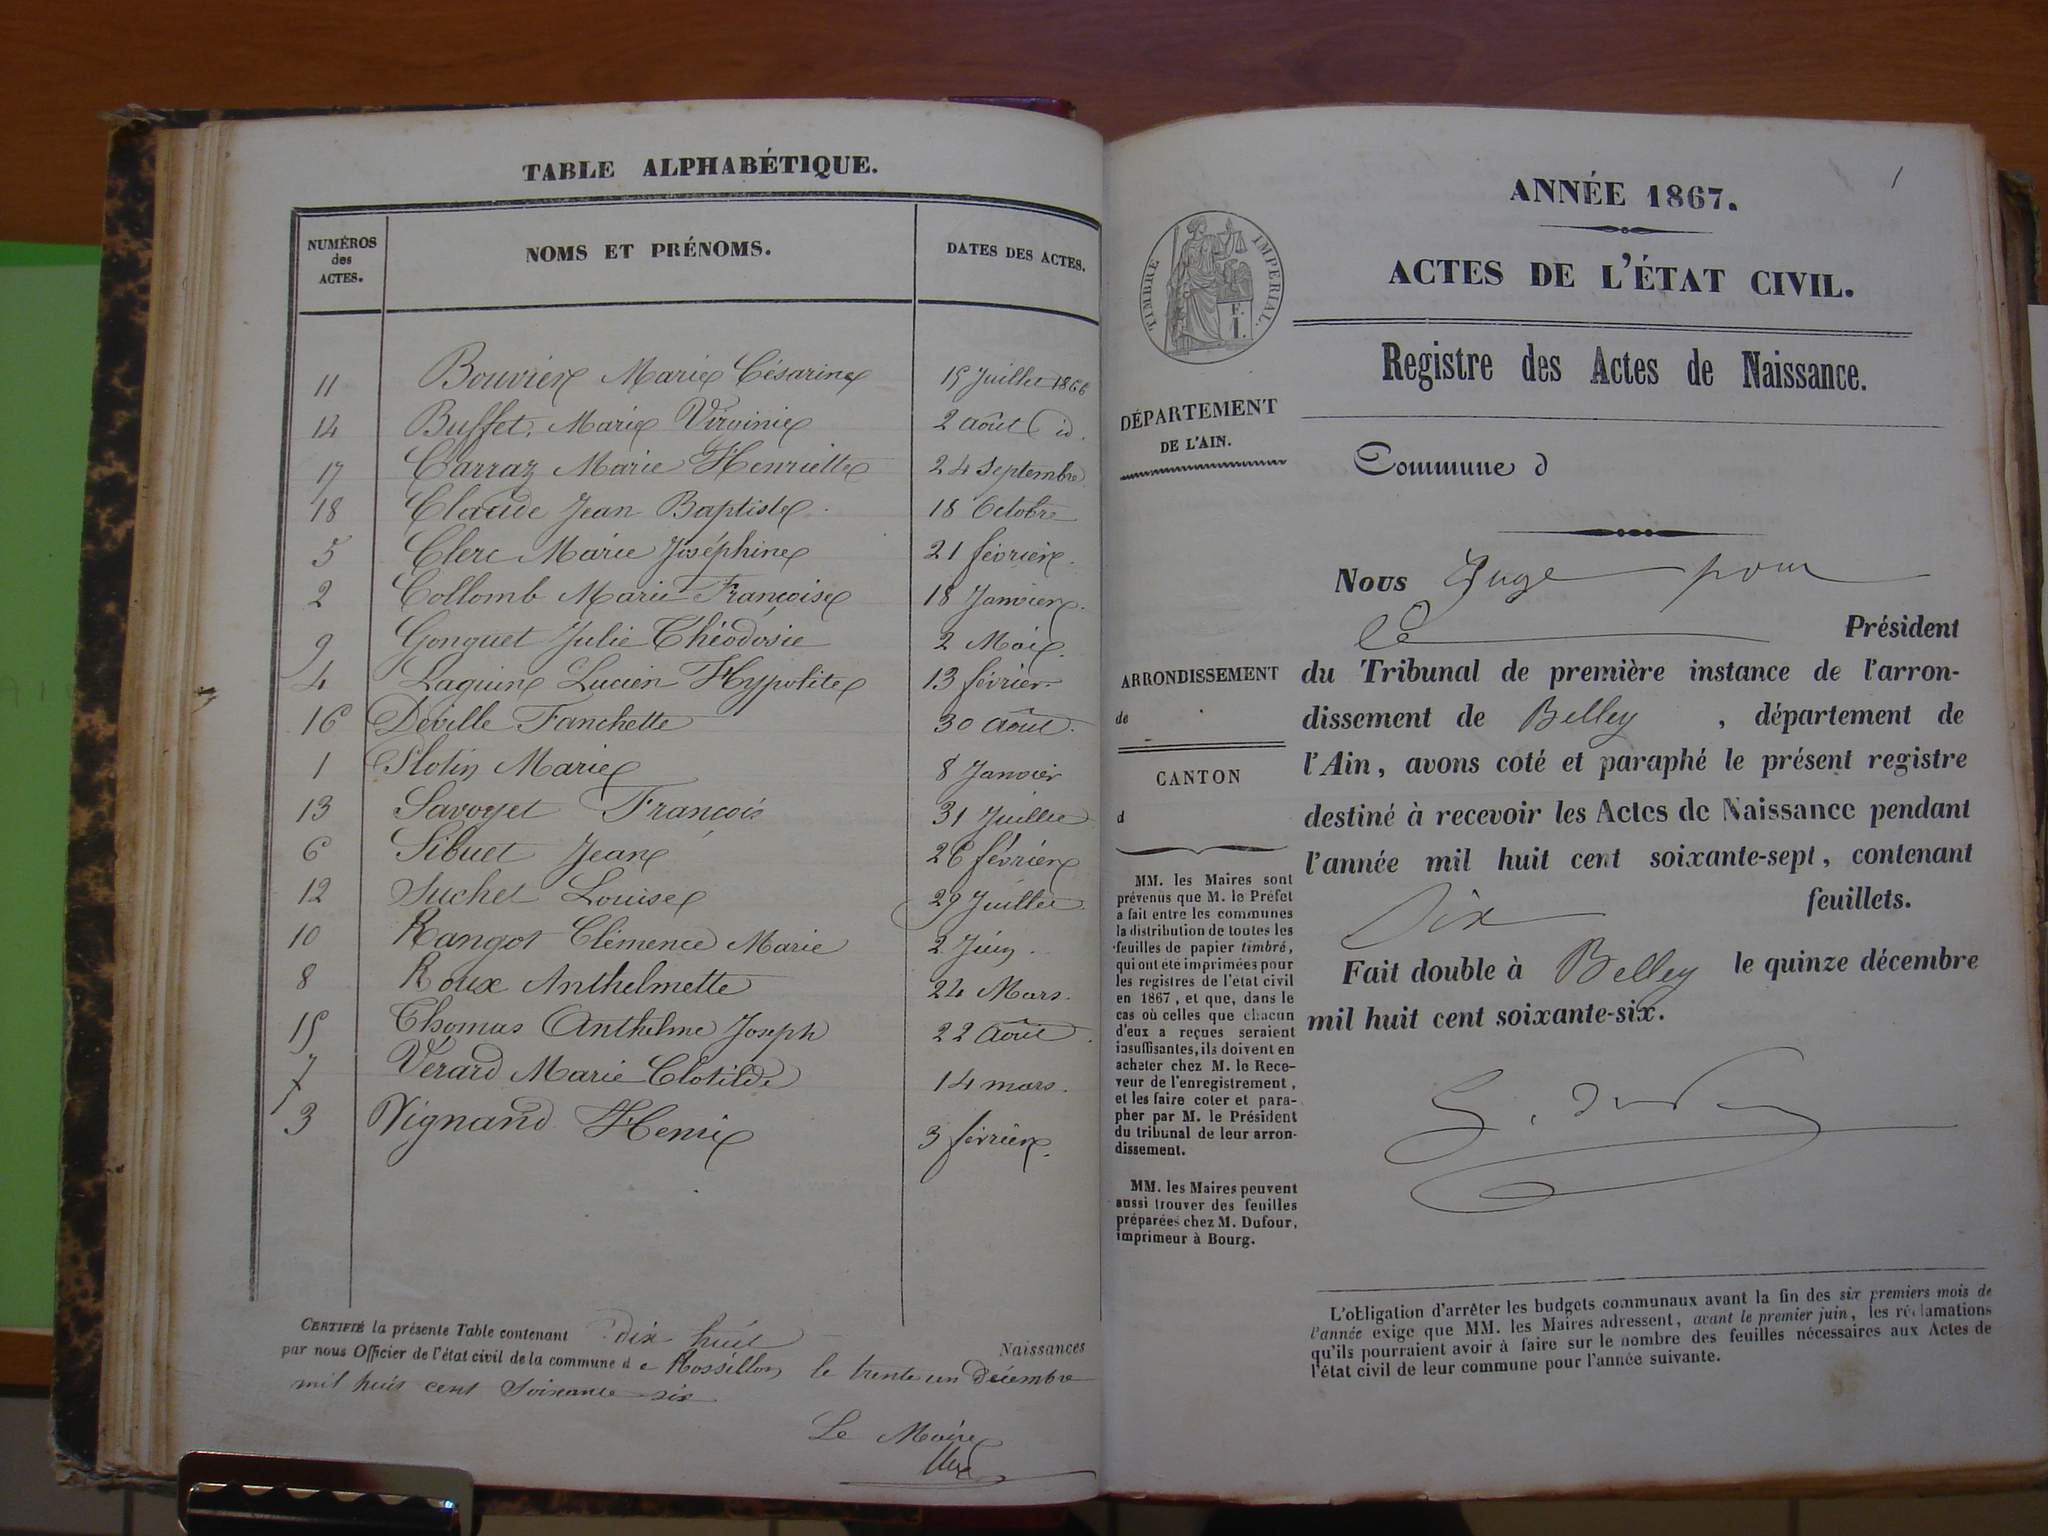 TABLE ALPHABÉTIQUE.
NUMÉROS des ACTES. NOMS ET PRÉNOMS. DATES DES ACTES.
11 Bouvier Marie Césarine 15 Juillet 1866
14 Buffet, Marie Virginie 2 août id.
17 Carraz Marie Henriette 24 Septembre
18 Claude Jean Baptiste 18 Octobre
5 Clerc Marie Joséphine 21 février.
2 Collomb Marie Françoise 18 Janvier.
9 Gonguet Julie Théodosie 2 Mai.
4 Laguin Lucien Hyppolite 13 février
16 Deville Fanchette 30 août.
1 Marie 8 Janvier
13 Savoyet François 31 Juillet
6 Sibuet Jean 26 février
12 Suchet Louise 29 Juillet
10 Rangot Clémence Marie 2 Juin.
8 Roux Anthelmette 24 Mars.
15 Thomas Anthelme Joseph 22 Août.
7 Vérard Marie Clotilde 14 mars.
3 Vignand Henri 3 février.
CERTIFIÉ la présente Table contenant dix huit Naissances
par nous Officier de l'état civil de la commune de Rossillon le trente un Décembre
mil huit cent soixante six
Le Maire
1
ANNÉE 1867.
TIMBRE IMPÉRIAL.
E. I.
ACTES DE L'ÉTAT CIVIL.
Registre des Actes de Naissance.
DÉPARTEMENT
DE L'AIN.
Commune d
Nous Juge pour
le Président
ARRONDISSEMENT
de
du Tribunal de première instance de l'arron-
dissement de Belley, département de
l'Ain, avons coté et paraphé le présent registre
destiné à recevoir les Actes de Naissance pendant
l'année mil huit cent soixante-sept, contenant
Dix feuillets.
Fait double à Belley le quinze décembre
mil huit cent soixante-six.
CANTON
d
MM. les Maires sont
prévenus que M. le Préfet
a fait entre les communes
la distribution de toutes les
feuilles de papier timbré,
qui ont été imprimées pour
les registres de l'état civil
en 1867, et que, dans le
cas où celles que chacun
d'eux a reçues seraient
insuffisantes, ils doivent en
acheter chez M. le Rece-
veur de l'enregistrement,
et les faire coter et para-
pher par M. le Président
du tribunal de leur arron-
dissement.
MM. les Maires peuvent
aussi trouver des feuilles
préparées chez M. Dufour,
imprimeur à Bourg.
L'obligation d'arrêter les budgets communaux avant la fin des six premiers mois de
l'année exige que MM. les Maires adressent, avant le premier juin, les réclamations
qu'ils pourraient avoir à faire sur le nombre des feuilles nécessaires aux Actes de
l'état civil de leur commune pour l'année suivante.